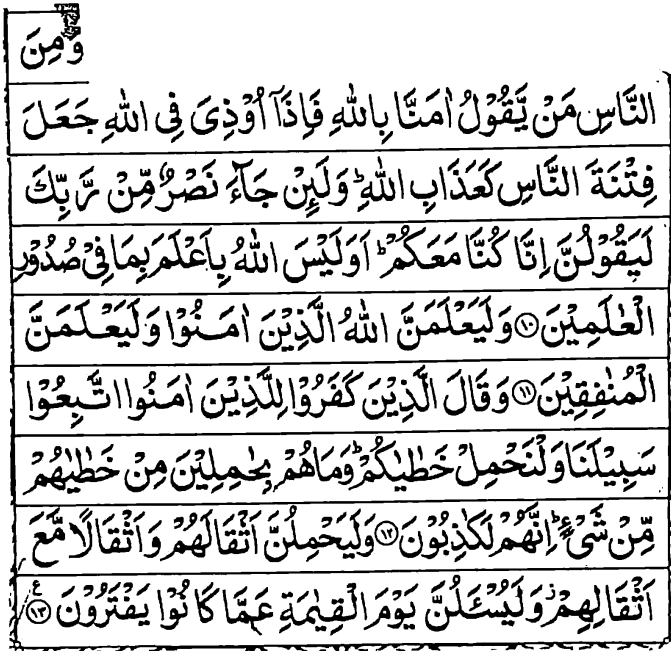 وَمِنَ
النَّاسِ مَنْ يَّقُوْلُ اٰمَنَّا بِاللّٰهِ فَاِذَاۤ اُوْذِیَ فِی اللّٰهِ جَعَلَ
فِتْنَةَ النَّاسِ كَعَذَابِ اللّٰهِ ؕ وَلَىِٕنْ جَآءَ نَصْرٌ مِّنْ رَّبِّكَ
لَيَقُوْلُنَّ اِنَّا كُنَّا مَعَكُمْ ؕ اَوَلَيْسَ اللّٰهُ بِاَعْلَمَ بِمَا فِیْ صُدُوْرِ
الْعٰلَمِيْنَ ۝۱۰ وَلَيَعْلَمَنَّ اللّٰهُ الَّذِيْنَ اٰمَنُوْا وَلَيَعْلَمَنَّ
الْمُنٰفِقِيْنَ ۝۱۱ وَقَالَ الَّذِيْنَ كَفَرُوْا لِلَّذِيْنَ اٰمَنُوا اتَّبِعُوْا
سَبِيْلَنَا وَلْنَحْمِلْ خَطٰيٰكُمْ ؕ وَمَا هُمْ بِحٰمِلِيْنَ مِنْ خَطٰيٰهُمْ
مِّنْ شَیْءٍ ؕ اِنَّهُمْ لَكٰذِبُوْنَ ۝۱۲ وَلَيَحْمِلُنَّ اَثْقَالَهُمْ وَاَثْقَالًا مَّعَ
اَثْقَالِهِمْ ؗ وَلَيُسْـَٔلُنَّ يَوْمَ الْقِيٰمَةِ عَمَّا كَانُوْا يَفْتَرُوْنَ ۝۱۳ ع